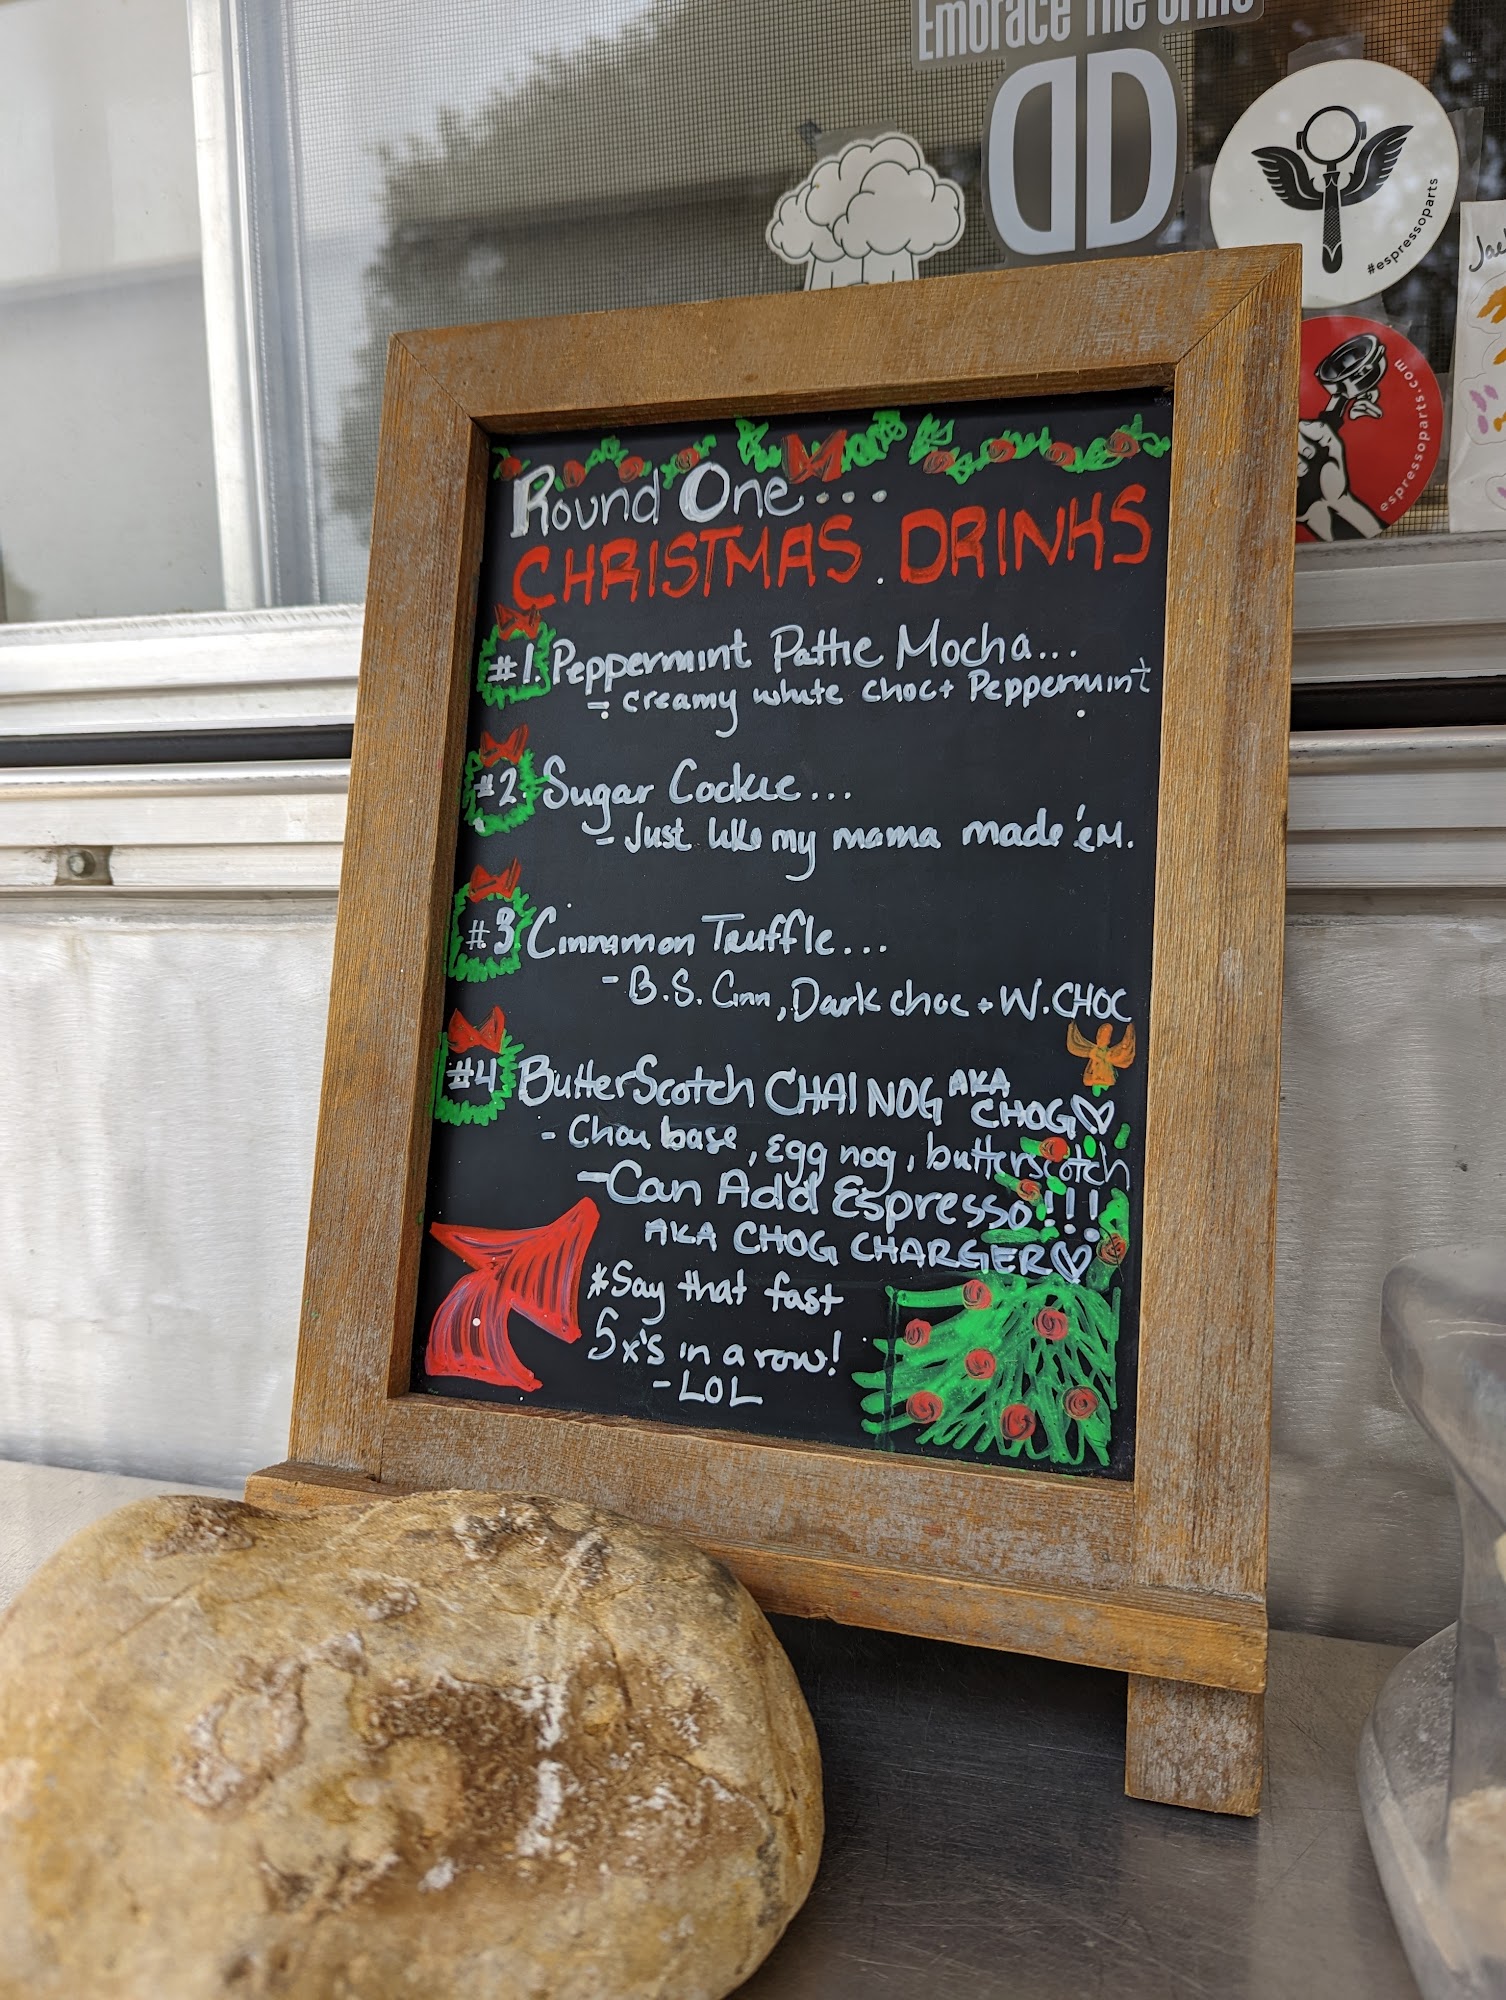 Embrace The Grind
DD
#espressoparts
espressoparts.com
Round One....
CHRISTMAS DRINKS
#1. Peppermint Pattie Mocha...
- creamy white choc + Peppermint
#2. Sugar Cookie...
- Just like my mama made 'em.
#3 Cinnamon Truffle...
- B.S. Cinn, Dark choc + W. CHOC
#4 ButterScotch CHAI NOG AKA
CHOG♡
- Chai base, Egg nog, butterscotch
- Can Add Espresso!!!
AKA CHOG CHARGER♡
*Say that fast
5x's in a row!
- LOL